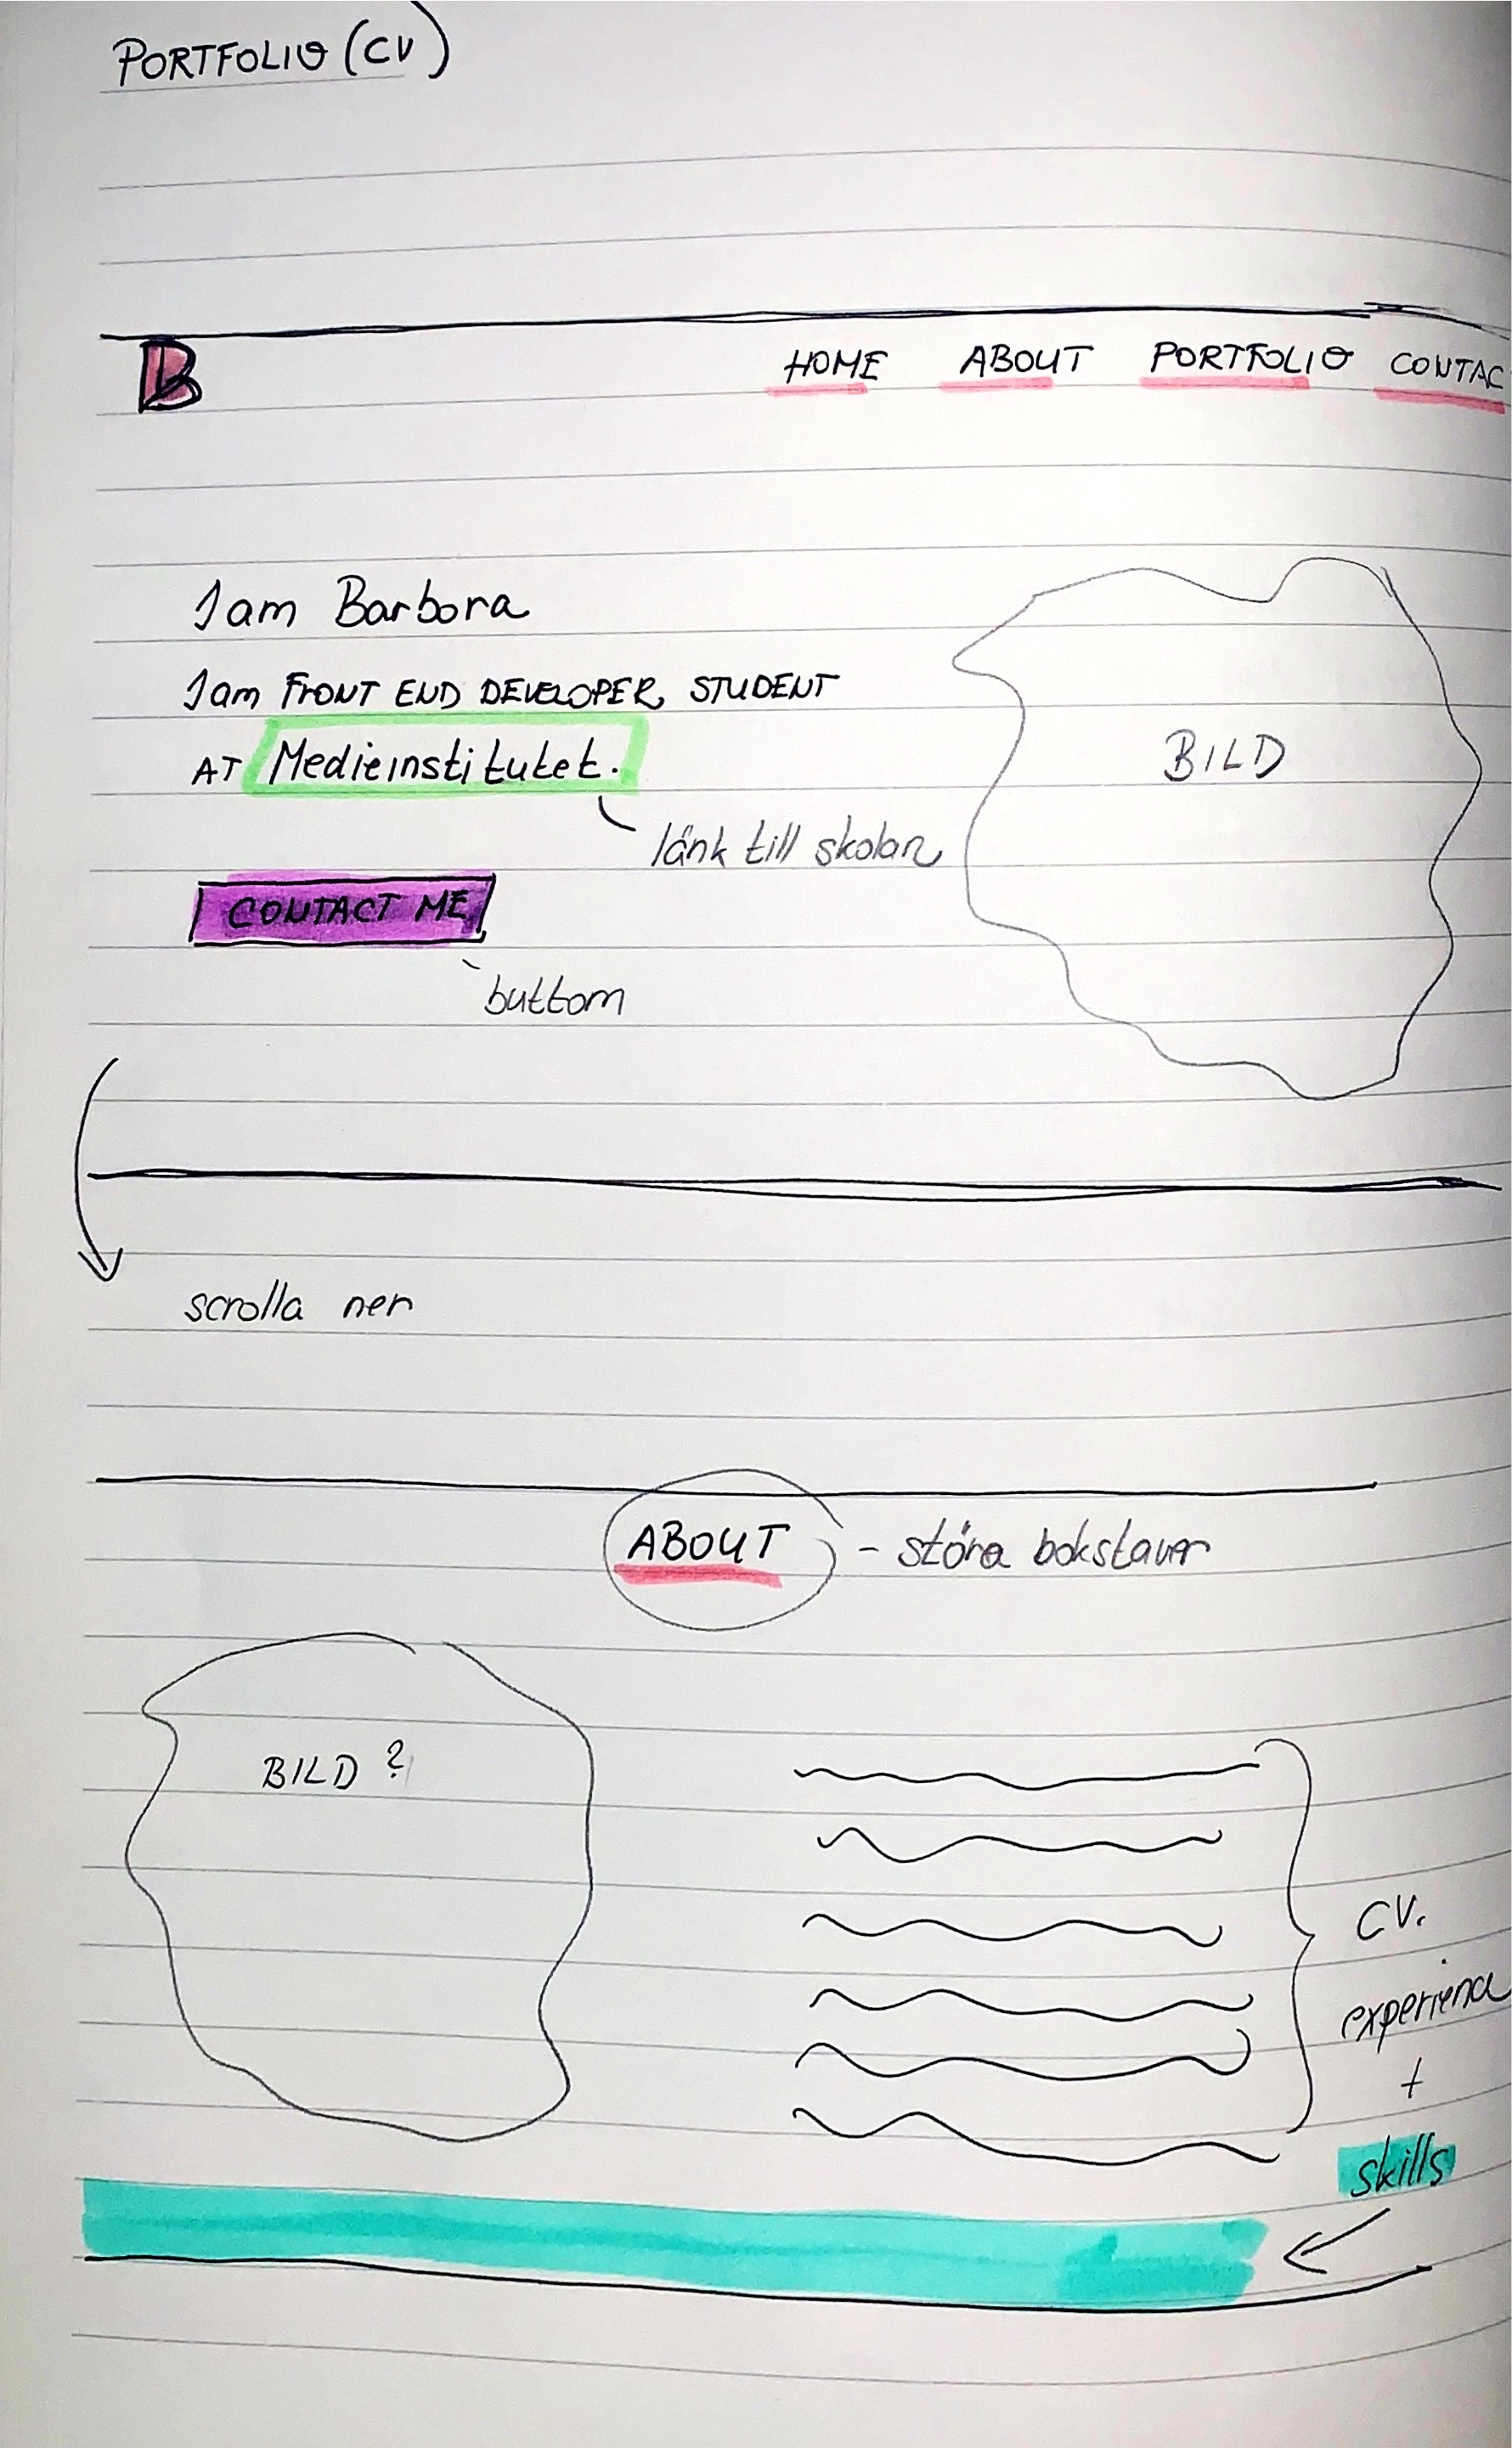 PORTFOLIO (CV)
B
HOME ABOUT PORTFOLIO CONTAC
I am Barbora
I am FRONT END DEVELOPER, STUDENT
AT Medieinstitutet.
länk till skolan
BILD
CONTACT ME
buttom
scrolla ner
ABOUT - stóra bokstaver
BILD ?
CV.
experienc
+
skills